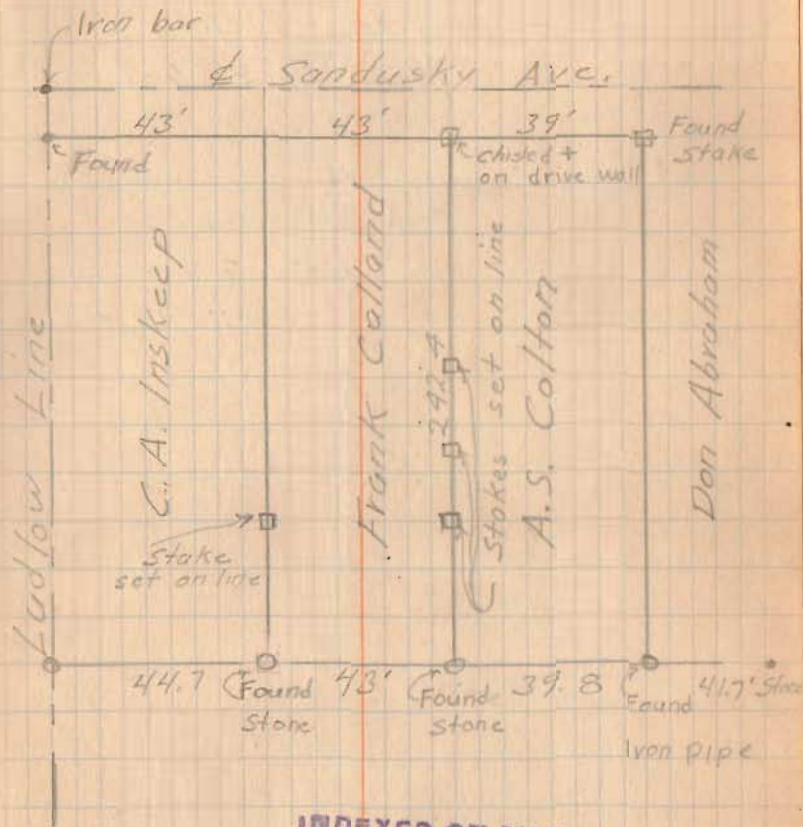 Iron bar
℄ Sandusky Ave.
43' 43' 39'
Found
chisled +
on drive wall
Found
Stake
Ludlow Line
C. A. Inskeep
Frank Calland
242.4
Stakes set on line
A.S. Colton
Don Abraham
Stake
set on line
44.7 43' 39.8 41.7' Stone
Found
Stone
Found
Stone
Found
Iron pipe
INDEXED